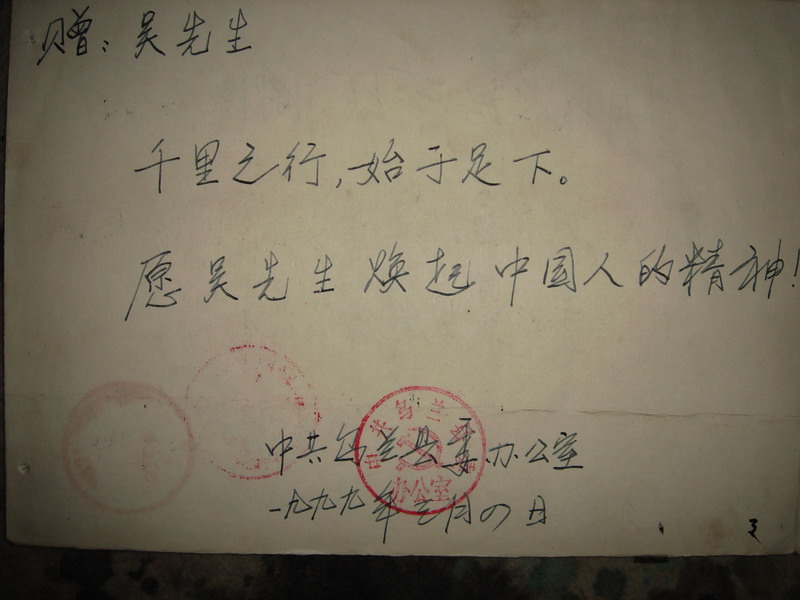 赠：吴先生
千里之行，始于足下。
愿吴先生焕起中国人的精神！
中共乌兰县委办公室
一九九九年三月四日
办公室